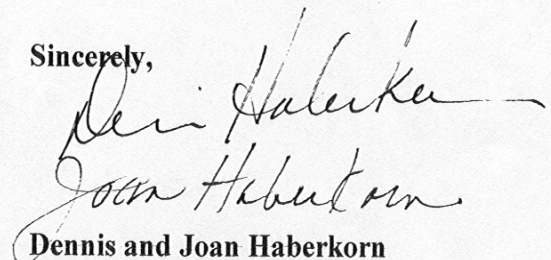 Sincerely,
Dennis Haberkorn
Joan Haberkorn
Dennis and Joan Haberkorn